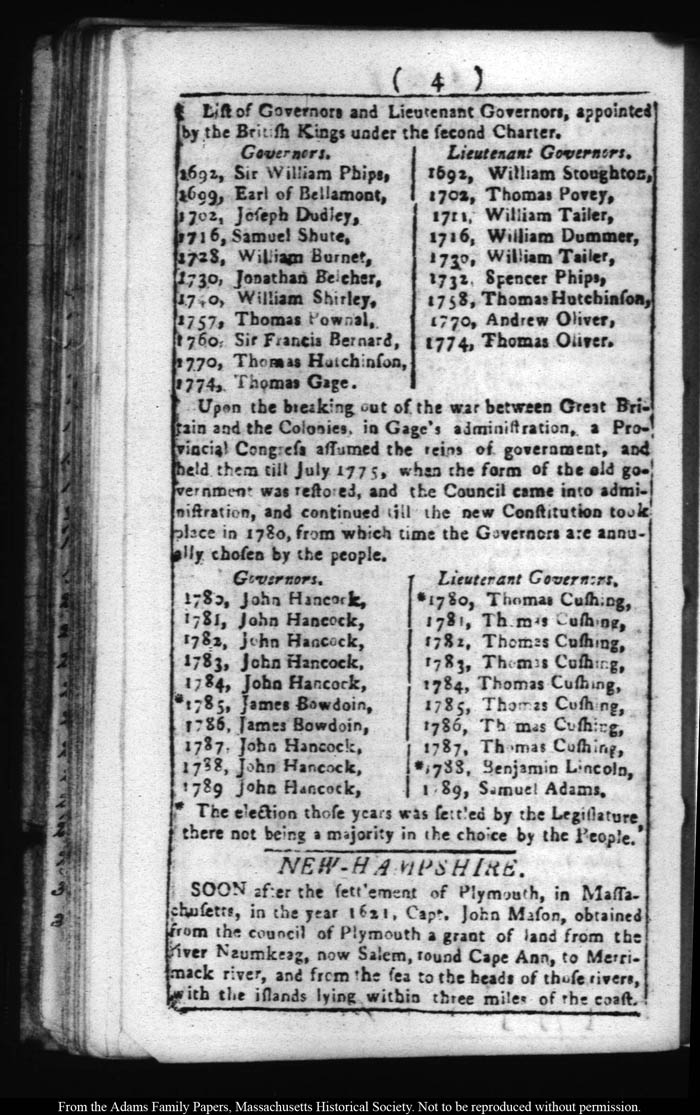 ( 4 )
Liſt of Governors and Lieutenant Governors, appointed
by the Britiſh Kings under the ſecond Charter.
Governors.
1692, Sir William Phips,
1699, Earl of Bellamont,
1702, Joſeph Dudley,
1716, Samuel Shute,
1728, William Burnet,
1730, Jonathan Belcher,
1740, William Shirley,
1757, Thomas Pownal,
1760, Sir Francis Bernard,
1770, Thomas Hutchinſon,
1774, Thomas Gage.
Lieutenant Governors.
1692, William Stoughton,
1702, Thomas Povey,
1711, William Tailer,
1716, William Dummer,
1730, William Tailer,
1732, Spencer Phips,
1758, Thomas Hutchinſon,
1770, Andrew Oliver,
1774, Thomas Oliver.
Upon the breaking out of the war between Great Bri-
tain and the Colonies, in Gage's adminiſtration, a Pro-
vincial Congreſs aſſumed the reins of government, and
held them till July 1775, when the form of the old go-
vernment was reſtored, and the Council came into admi-
niſtration, and continued till the new Conſtitution took
place in 1780, from which time the Governors are annu-
ally choſen by the people.
Governors.
1780, John Hancock,
1781, John Hancock,
1782, John Hancock,
1783, John Hancock,
1784, John Hancock,
*1785, James Bowdoin,
1786, James Bowdoin,
1787, John Hancock,
1788, John Hancock,
1789 John Hancock,
Lieutenant Governors.
*1780, Thomas Cuſhing,
1781, Thomas Cuſhing,
1782, Thomas Cuſhing,
1783, Thomas Cuſhing,
1784, Thomas Cuſhing,
1785, Thomas Cuſhing,
1786, Thomas Cuſhing,
1787, Thomas Cuſhing,
*1788, Benjamin Lincoln,
1789, Samuel Adams.
* The election thoſe years was ſettled by the Legiſlature
there not being a majority in the choice by the People.
NEW-HAMPSHIRE.
SOON after the ſettlement of Plymouth, in Maſſa-
chuſetts, in the year 1621, Capt. John Maſon, obtained
from the council of Plymouth a grant of land from the
river Naumkeag, now Salem, round Cape Ann, to Merri-
mack river, and from the ſea to the heads of thoſe rivers,
with the iſlands lying within three miles of the coaſt.
From the Adams Family Papers, Massachusetts Historical Society. Not to be reproduced without permission.